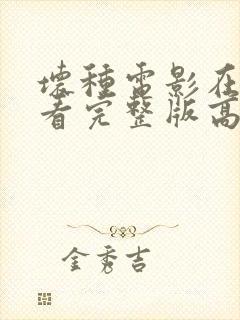 壞種電影在
看完整版高
金秀吉